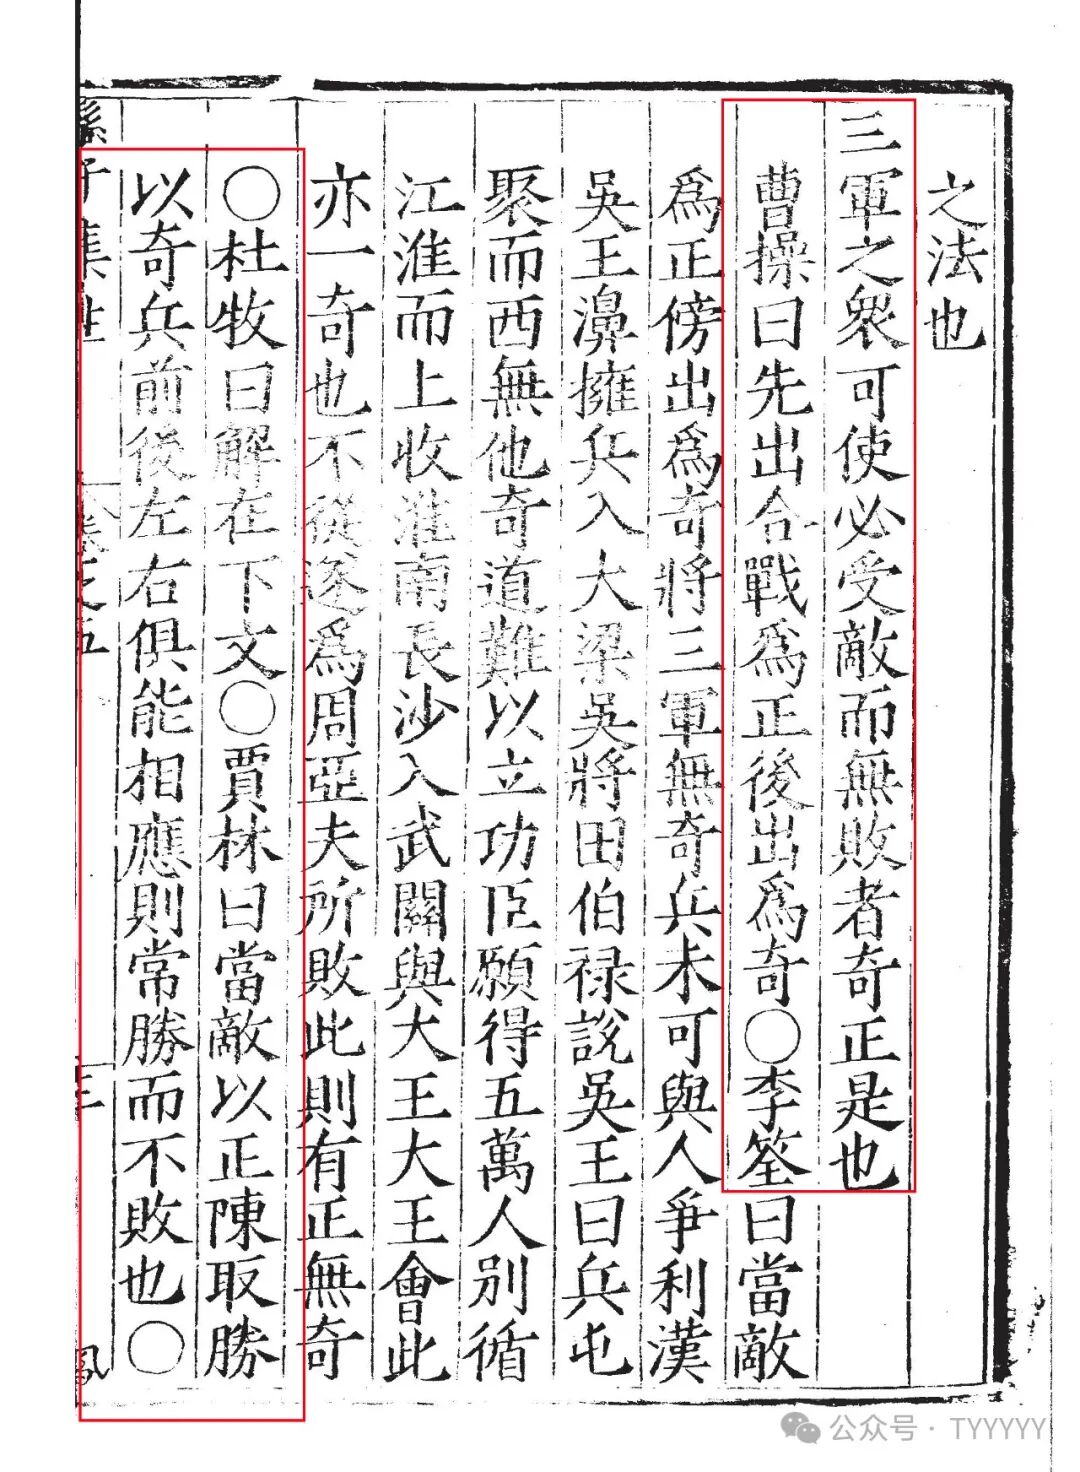 之法也
三軍之衆可使必受敵而無敗者奇正是也
曹操曰先出合戰爲正後出爲奇〇李筌曰當敵
爲正傍出爲奇將三軍無奇兵未可與人爭利漢
吳王濞擁兵入大梁吳將田伯祿說吳王曰兵屯
聚而西無他奇道難以立功臣願得五萬人別循
江淮而上收淮南長沙入武關與大王大王會此
亦一奇也不從遂爲周亞夫所敗此則有正無奇
〇杜牧曰解在下文〇賈林曰當敵以正陳取勝
以奇兵前後左右俱能相應則常勝而不敗也〇
公众号 · TYYYYY